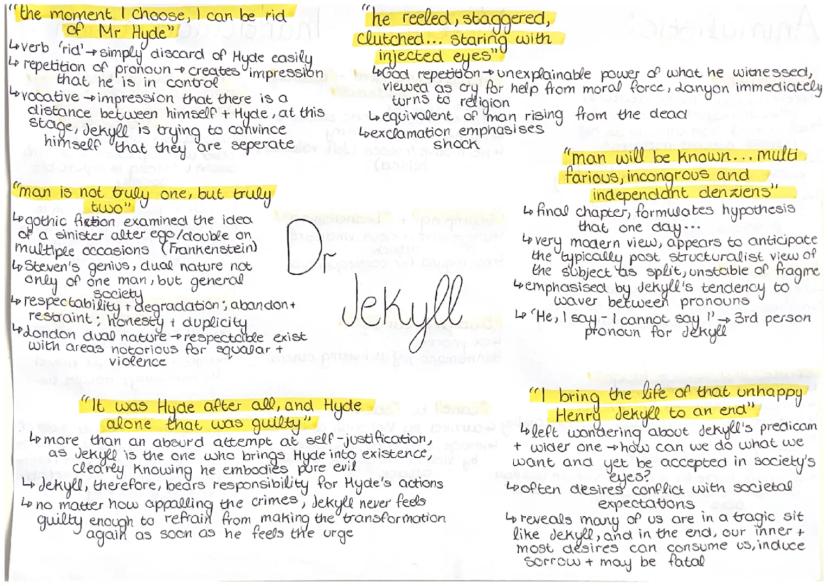 "the moment I choose, I can be rid
of Mr Hyde"
↳ verb 'rid' → simply discard of Hyde easily
↳ repetition of pronoun → creates impression
that he is in control
↳ vocative → impression that there is a
distance between himself + Hyde, at this
stage, Jekyll is trying to convince
himself that they are seperate
"man is not truly one, but truly
two"
↳ gothic fiction examined the idea
of a sinister alter ego/double on
multiple occasions (Frankenstein)
↳ Steven's genius, dual nature not
only of one man, but general
society
↳ respectability + degradation; abandon +
restraint; honesty + duplicity
↳ London dual nature → respectable exist
with areas notorious for squalar +
violence
Dr
Jekyll
"he reeled, staggered,
clutched... staring with
injected eyes"
↳ God repetition → unexplainable power of what he witnessed,
viewed as cry for help from moral force, Lanyon immediately
turns to religion
↳ equivalent of man rising from the dead
↳ exclamation emphasises
shock
"man will be known... multi
farious, incongrous and
independant denziens"
↳ final chapter, formulates hypothesis
that one day...
↳ very modern view, appears to anticipate
the typically post structuralist view of
the subject as split, unstable of fragme
↳ emphasised by Jekyll's tendency to
waver between pronouns
↳ 'He, I say - I cannot say I' → 3rd person
pronoun for Jekyll
"It was Hyde after all, and Hyde
alone that was guilty"
↳ more than an absurd attempt at self-justification,
as Jekyll is the one who brings Hyde into existence,
clearly knowing he embodies pure evil
↳ Jekyll, therefore, bears responsibility for Hyde's actions
↳ no matter how appalling the crimes, Jekyll never feels
guilty enough to refrain from making the transformation
again as soon as he feels the urge
"I bring the life of that unhappy
Henry Jekyll to an end"
↳ left wondering about Jekyll's predicam
+ wider one → how can we do what we
want and yet be accepted in society's
eyes?
↳ often desires conflict with societal
expectations
↳ reveals many of us are in a tragic sit
like Jekyll, and in the end, our inner +
most desires can consume us, induce
sorrow + may be fatal